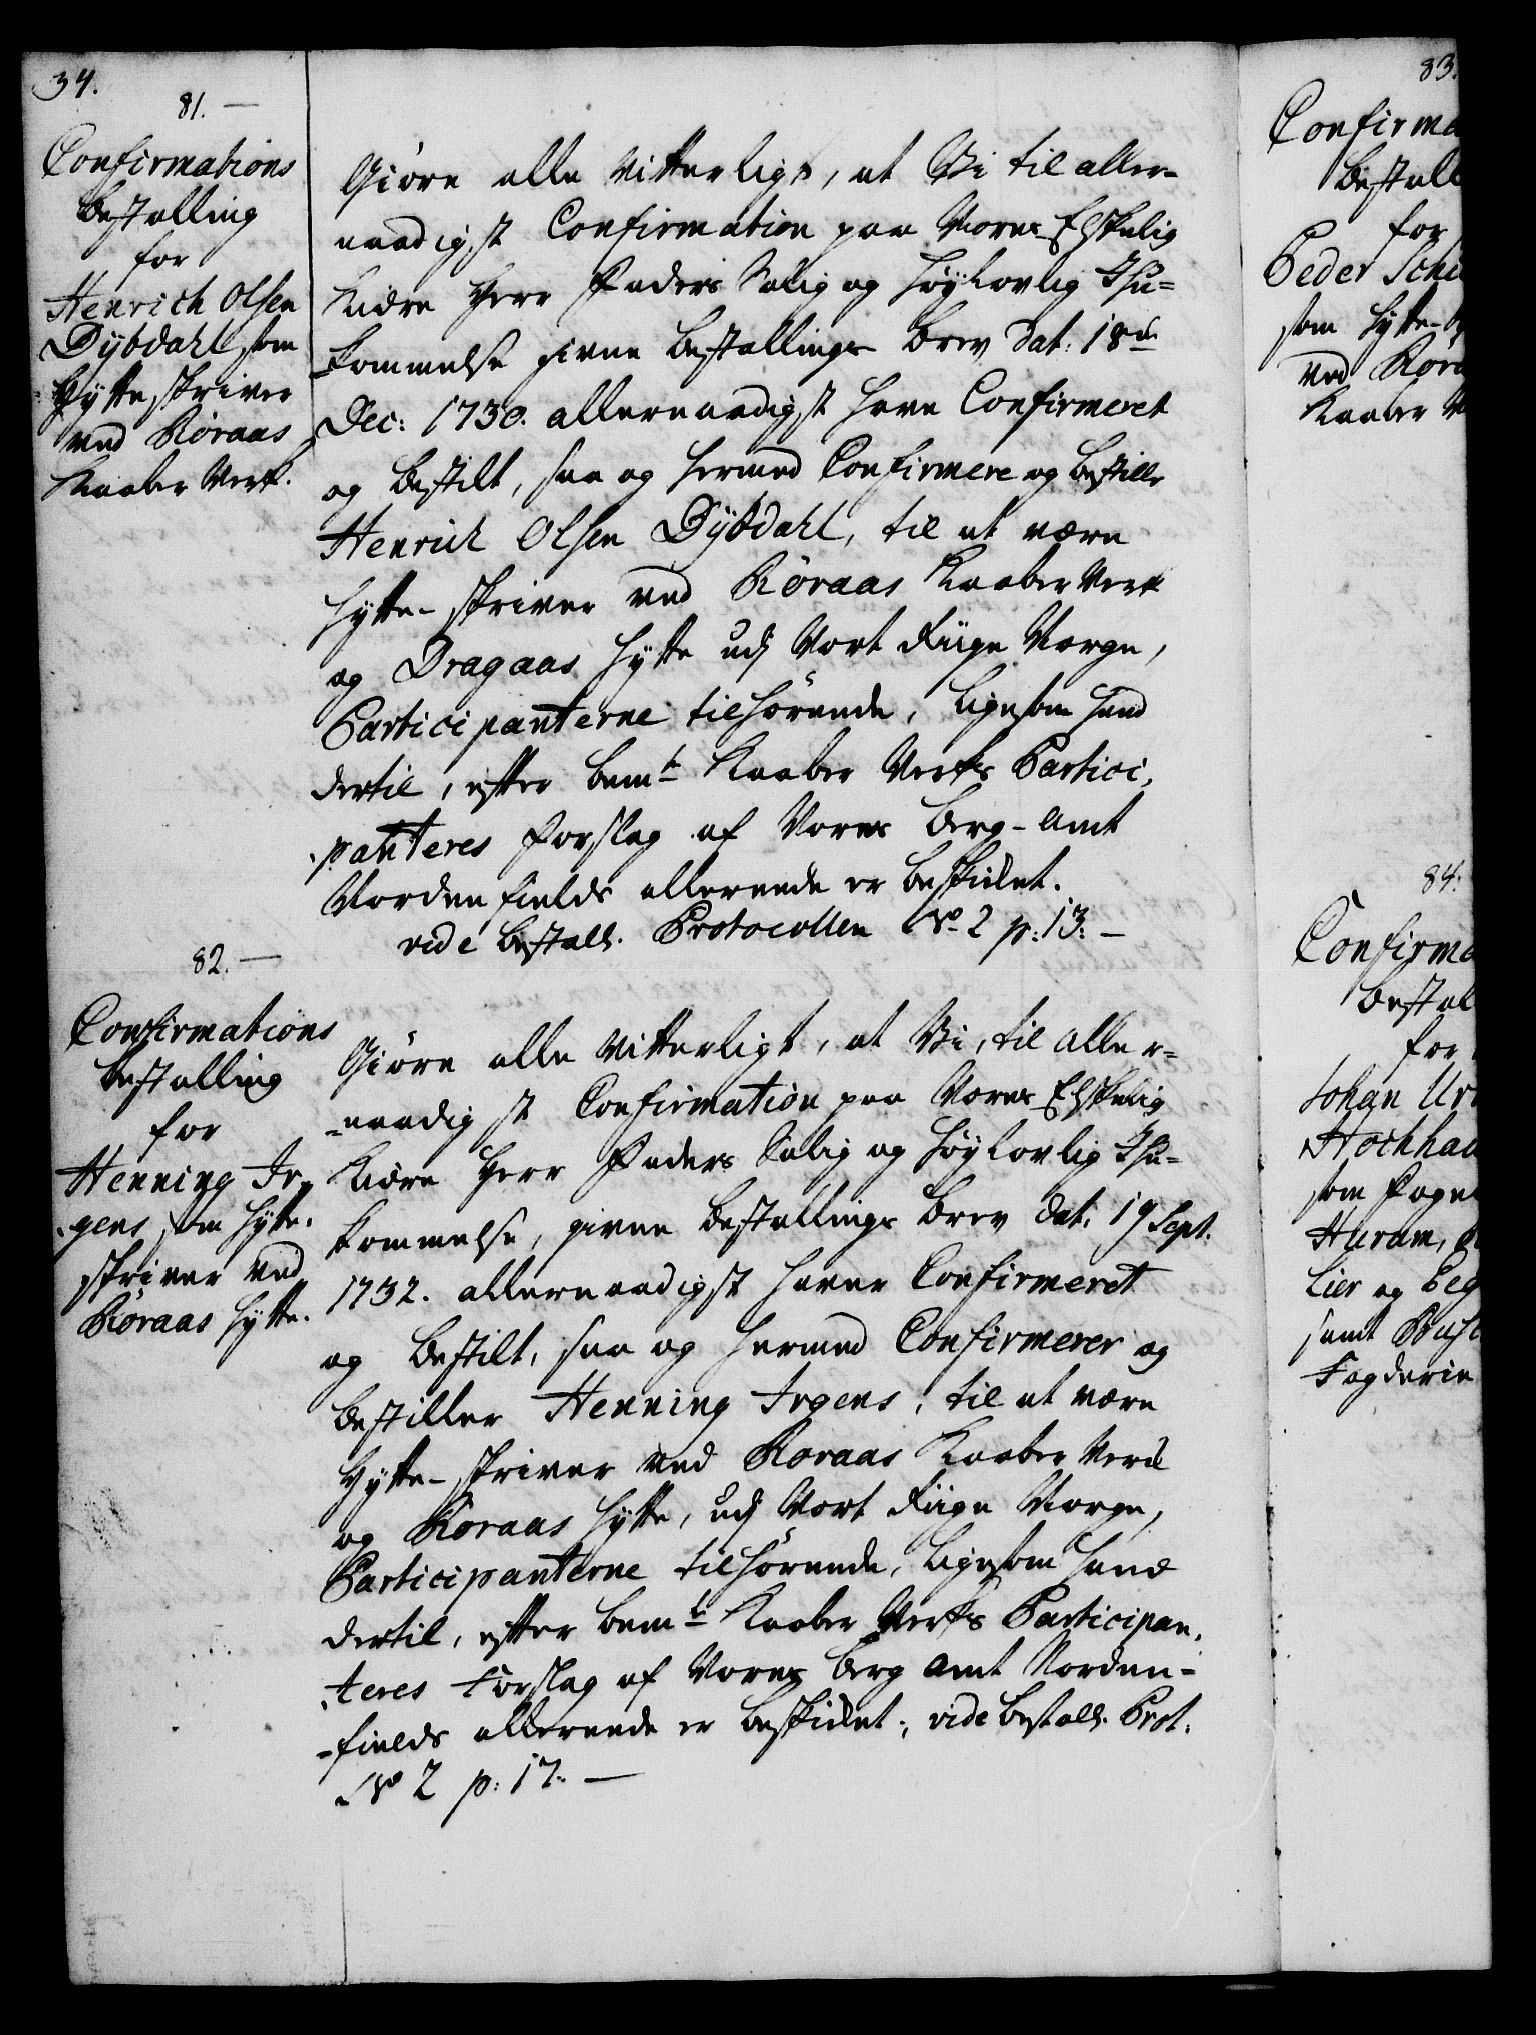 34.
81. —
Confirmations
Bestalling
for
Henrich Olsen
Dybdahl som
Hytteskriver
ved Röraas
Kaaber Verk.
Giöre alle Vitterligt, at Vi til aller-
naadigst Confirmation paa Vores Elskelig
Kiære Herr Faders Salig og Høylovlig Ihu-
kommelse givne Bestallings Brev dat: 18de
Dec: 1730. allernaadigst have Confirmeret
og bestilt, saa og hermed Confirmere og bestille
Henrich Olsen Dybdahl, til at være
Hytte-skriver ved Röraas Kaaber Verk
og Dragaas Hytte udj Vort Riige Norge,
Participanterne tilhörende, ligesom hand
dertil, efter bemte Kaaber Verks Partici-
panteres Forslag af Vores Berg-Amt
Nordenfields allereede er beskicket.
vide Bestall. Protocollen No 2 p: 13. —
82. —
Confirmations
Bestalling
for
Henning Ir-
gens som Hytte-
skriver ved
Röraas Hytte.
Giöre alle Vitterligt, at Vi, til aller-
naadigst Confirmation paa Vores Elskelig
Kiære Herr Faders Salig og Høylovlig Ihu-
kommelse, givne Bestallings Brev dat: 19 Sept.
1732. allernaadigst haver Confirmeret
og bestilt, saa og hermed Confirmerer og
bestiller Henning Irgens, til at være
Hytte-skriver ved Roraas Kaaber Verck
og Röraas Hytte, udj Vort Riige Norge,
Participanterne tilhörende, ligesom hand
dertil, efter bemte Kaaber Verks Participan-
teres Forslag af Vores Berg Amt Norden-
-fields allereede er beskicket; vide Bestall. Prot:
No 2 p: 17. —
83.
Confirma
Bestall
for
Peder Schi
som Hytte-
ved Röra
Kaaber V
84.
Confirma
Bestal
for
Johan Ur
Hochhau
som Foget
Hurum,
Lier og Eeg
samt Busk
Fogderie